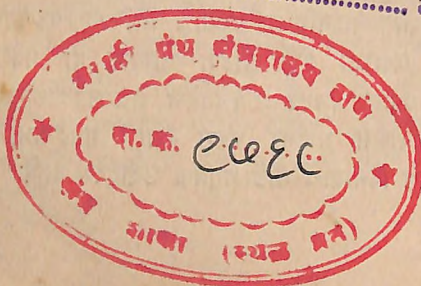 मराठी ग्रंथ संग्रहालय ठाणे
दा. क्र. ९७६८
शाखा (स्थळ प्रत)